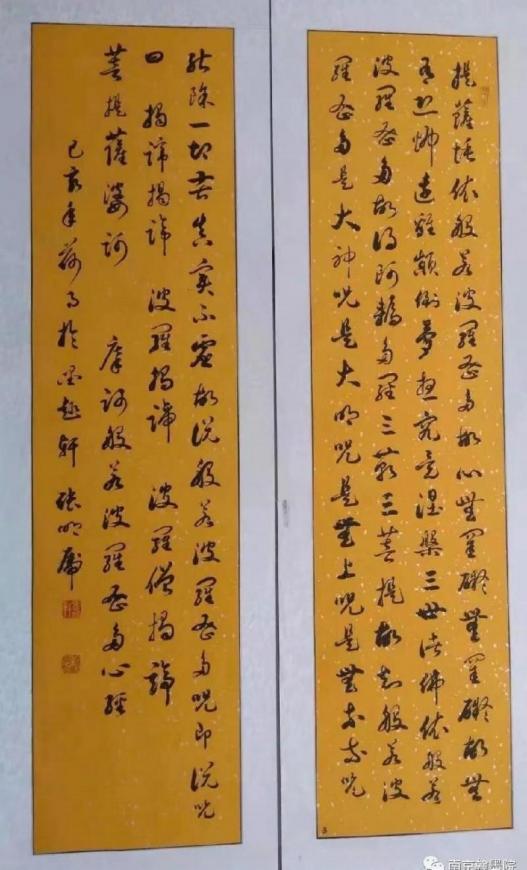 提薩埵依般若波羅蜜多故心無罣礙無罣礙故無
有恐怖遠離顛倒夢想究竟涅槃三世諸佛依般若
波羅蜜多故得阿耨多羅三藐三菩提故知般若波
羅蜜多是大神呪是大明呪是無上呪是無等等呪
能除一切苦真實不虛故說般若波羅蜜多呪即說呪
曰 揭諦揭諦 波羅揭諦 波羅僧揭諦
菩提薩婆訶 摩訶般若波羅蜜多心經
己亥年荷月於墨趣軒 張明虎
南京翰墨院